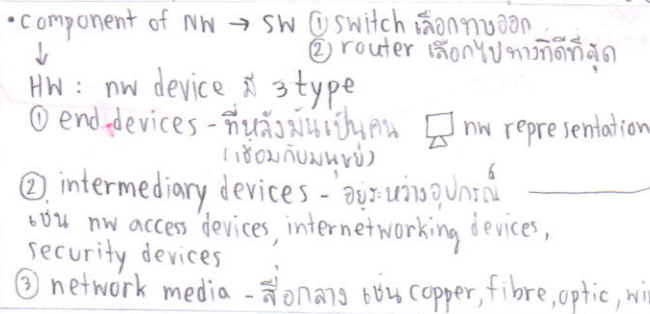 •component of NW → SW ① switch เลือกทางออก
② router เลือกไปทางที่ดีที่สุด
↓
HW : nw device มี 3 type
① end devices - ที่หลังมันเป็นคน nw representation
(เชื่อมกับมนุษย์)
② intermediary devices - อยู่ระหว่างอุปกรณ์
เช่น nw access devices, internetworking devices,
security devices
③ network media - สื่อกลาง เช่น copper, fibre, optic, wi